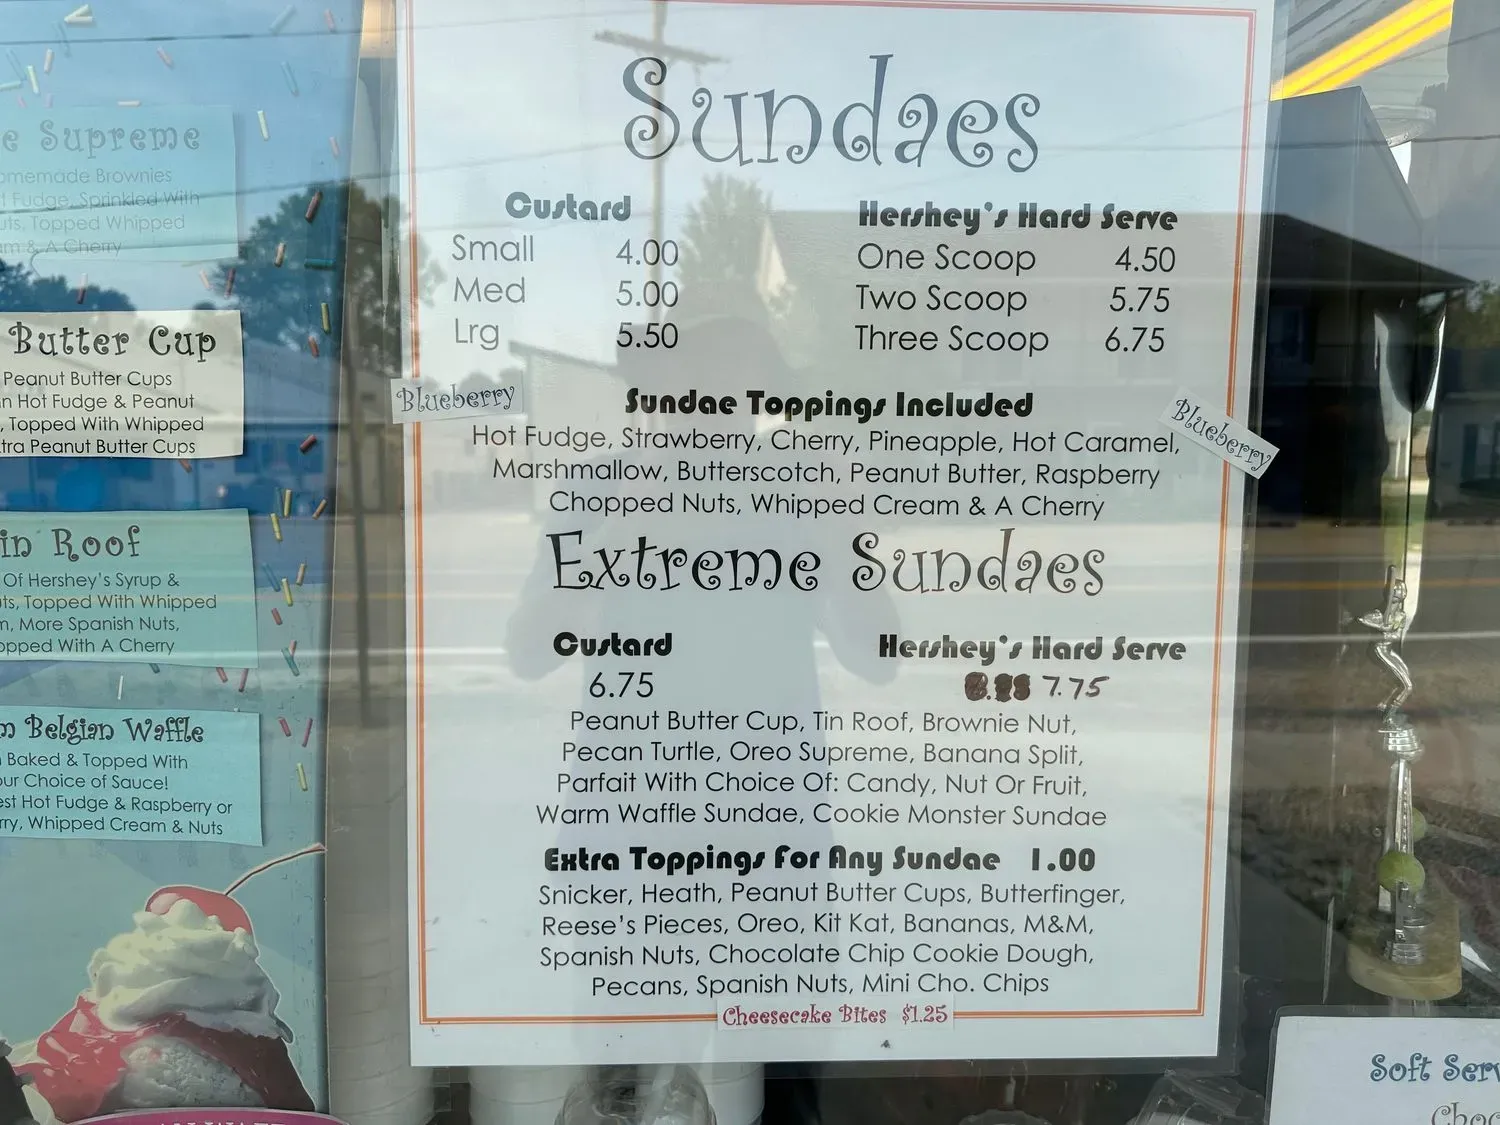 e Supreme
omemade Brownies
t Fudge, Sprinkled With
uts, Topped Whipped
am & A Cherry
Butter Cup
Peanut Butter Cups
n Hot Fudge & Peanut
, Topped With Whipped
tra Peanut Butter Cups
in Roof
Of Hershey's Syrup &
ts, Topped With Whipped
m, More Spanish Nuts,
opped With A Cherry
m Belgian Waffle
Baked & Topped With
our Choice of Sauce!
est Hot Fudge & Raspberry or
rry, Whipped Cream & Nuts
Sundaes
Custard
Small 4.00
Med 5.00
Lrg 5.50
Hershey's Hard Serve
One Scoop 4.50
Two Scoop 5.75
Three Scoop 6.75
Blueberry
Sundae Toppings Included
Hot Fudge, Strawberry, Cherry, Pineapple, Hot Caramel,
Blueberry
Marshmallow, Butterscotch, Peanut Butter, Raspberry
Chopped Nuts, Whipped Cream & A Cherry
Extreme Sundaes
Custard
6.75
Hershey's Hard Serve
7.75
Peanut Butter Cup, Tin Roof, Brownie Nut,
Pecan Turtle, Oreo Supreme, Banana Split,
Parfait With Choice Of: Candy, Nut Or Fruit,
Warm Waffle Sundae, Cookie Monster Sundae
Extra Toppings For Any Sundae 1.00
Snicker, Heath, Peanut Butter Cups, Butterfinger,
Reese's Pieces, Oreo, Kit Kat, Bananas, M&M,
Spanish Nuts, Chocolate Chip Cookie Dough,
Pecans, Spanish Nuts, Mini Cho. Chips
Cheesecake Bites $1.25
Soft Serv
Choc